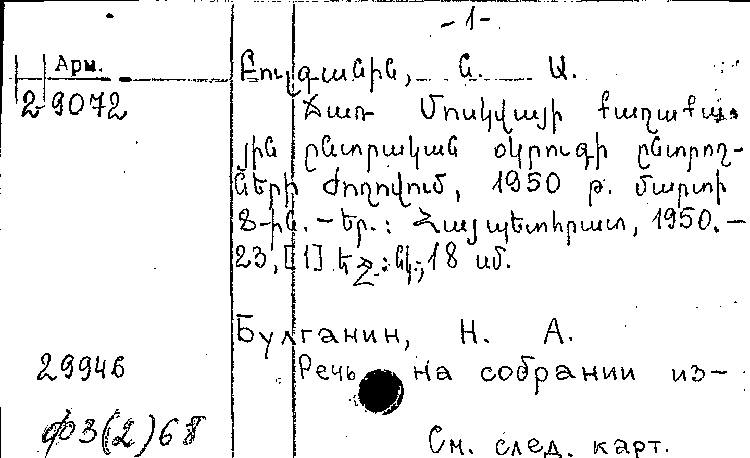 - 1 -
Арм.
2 9072
Բուլգանին, Ն. Ա.
Ճառ Մոսկվայի քաղաքա-
յին ընտրական օկրուգի ընտրող-
ների ժողովում, 1950 թ. մարտի
8-ին. – Եր.: Հայպետհրատ, 1950. –
23, [1] էջ.: նկ.; 18 սմ.
Булганин, Н. А.
Речь на собрании из-
29946
ф3(2)68
См. след. карт.